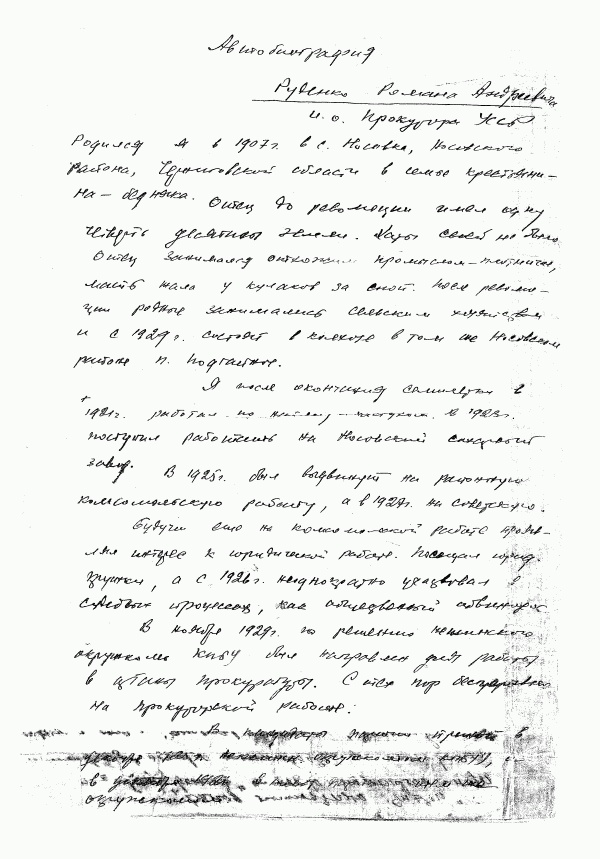 Автобиография
Руденко Романа Андреевича
и.о. Прокурора УССР
Родился я в 1907 г. в с. Носовка, Носовского
района, Черниговской области в семье крестьяни-
на-бедняка. Отец до революции имел одну
четверть десятины земли. Хаты своей не было.
Отец занимался отхожим промыслом-плотничал,
мать жала у кулаков за сноп. После револю-
ции родные занимались сельским хозяйством
и с 1929 г. состоят в колхозе в том же Носовском
районе п. Подгайное.
Я после окончания семилетки в
1921 г. работал по найму-пастухом. В 1923 г.
поступил работать на Носовский сахарный
завод. В 1925 г. был выдвинут на районную
комсомольскую работу, а в 1927 г. на советскую.
Будучи еще на комсомольской работе прояв-
лял интерес к юридической работе. Посещал юрид.
кружки, а с 1926 г. неоднократно участвовал в
судебных процессах, как общественный обвинитель.
В ноябре 1929 г. по решению Нежинского
окружкома КП(б)У был направлен для работы
в органы прокуратуры. С тех пор беспрерывно
на прокурорской работе.
В кандидаты партии принят в
окружкома КП(б)У,
в
окружкома